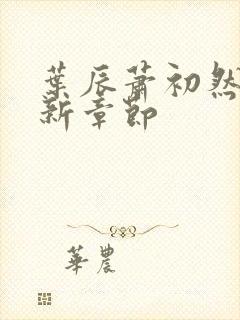 葉辰蕭初然
新章節
華農